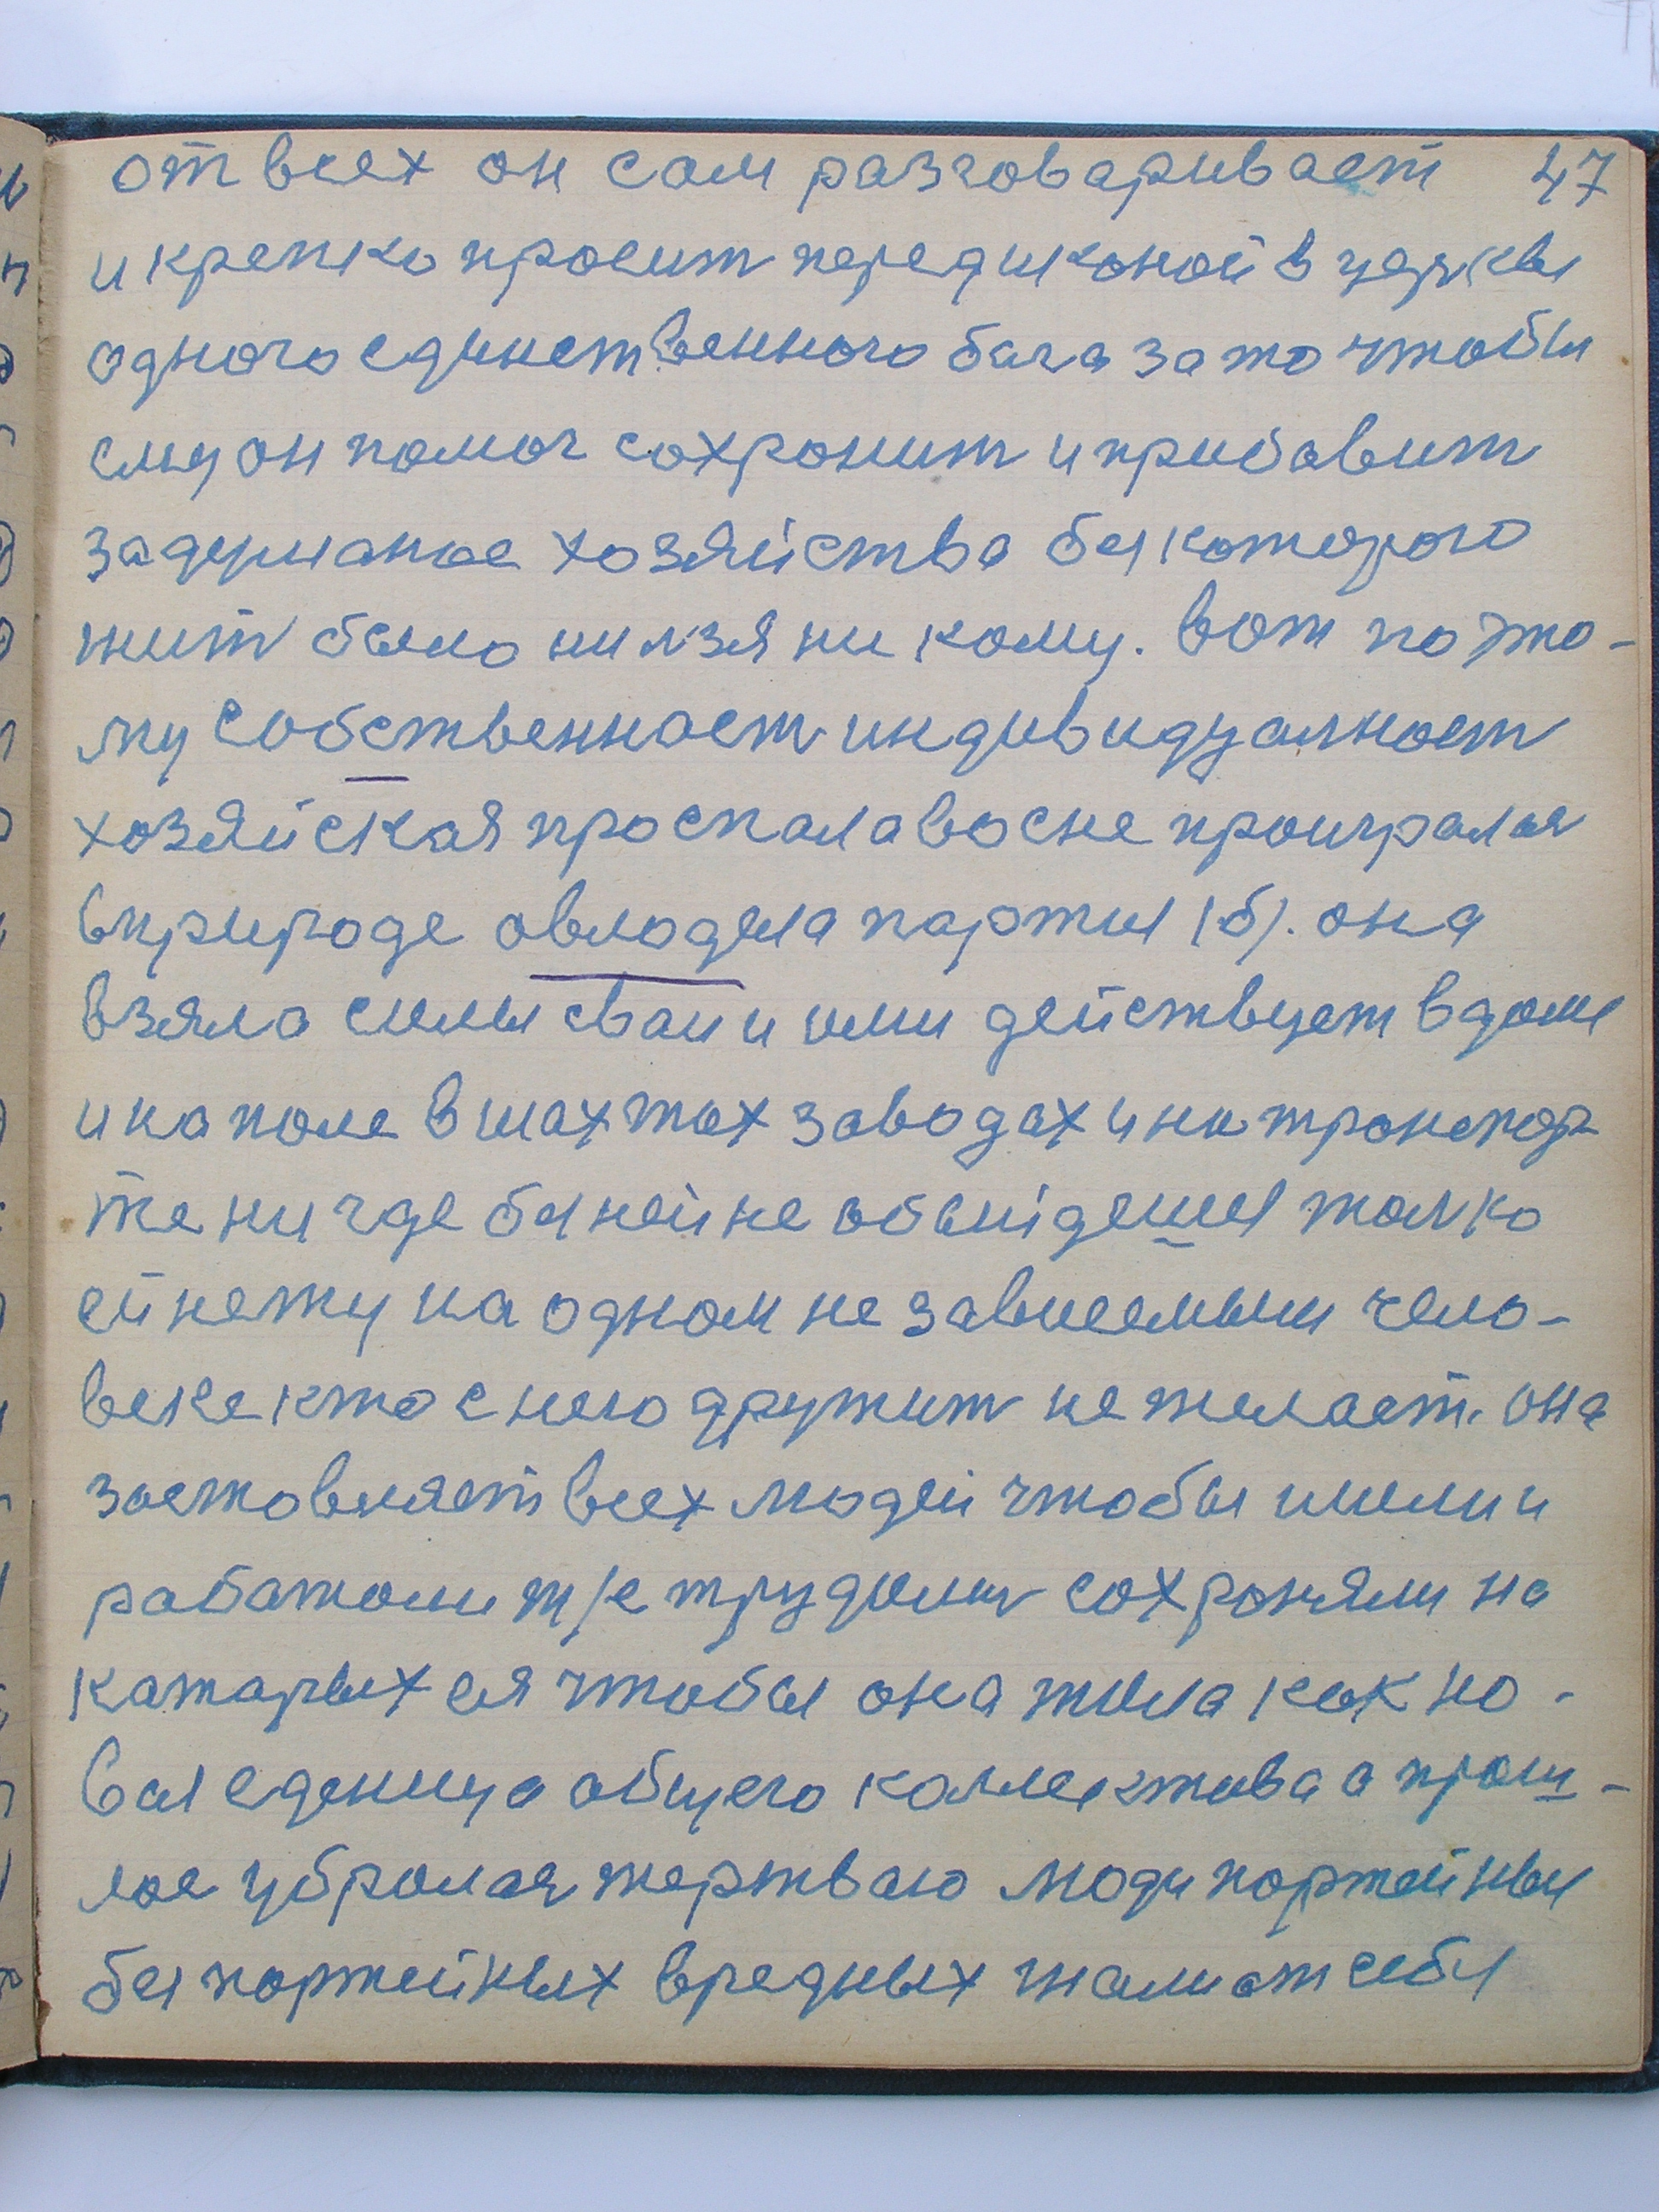 от всех он сам разговаривает 47
и крепко просит перед иконой в церквы
одного единственного бага за то чтобы
ему он помог сохронит и прибавит
задержаное хозяйства без которого
жит было нилзя ни кому. вот поэто-
му собственност индивидуалност
хозяйская проспала во сне проигралася
в природе овлодела партия (б). она
взяла силы сваи и ими действует в доме
и на поле в шахтах заводах и на транспор-
те ни где без ней не обойдешся толко
ей нету на одном не зависемым чело-
веке кто с нею дружит не желает. она
заставляет всех людей чтобы имели и
работали т/е трудилис сохроняли на
катарых ся чтобы она жила как но-
вая еденица общего коллектива а прош-
лое убралася жертваю люди портейные
без портейных вредных жали от себя